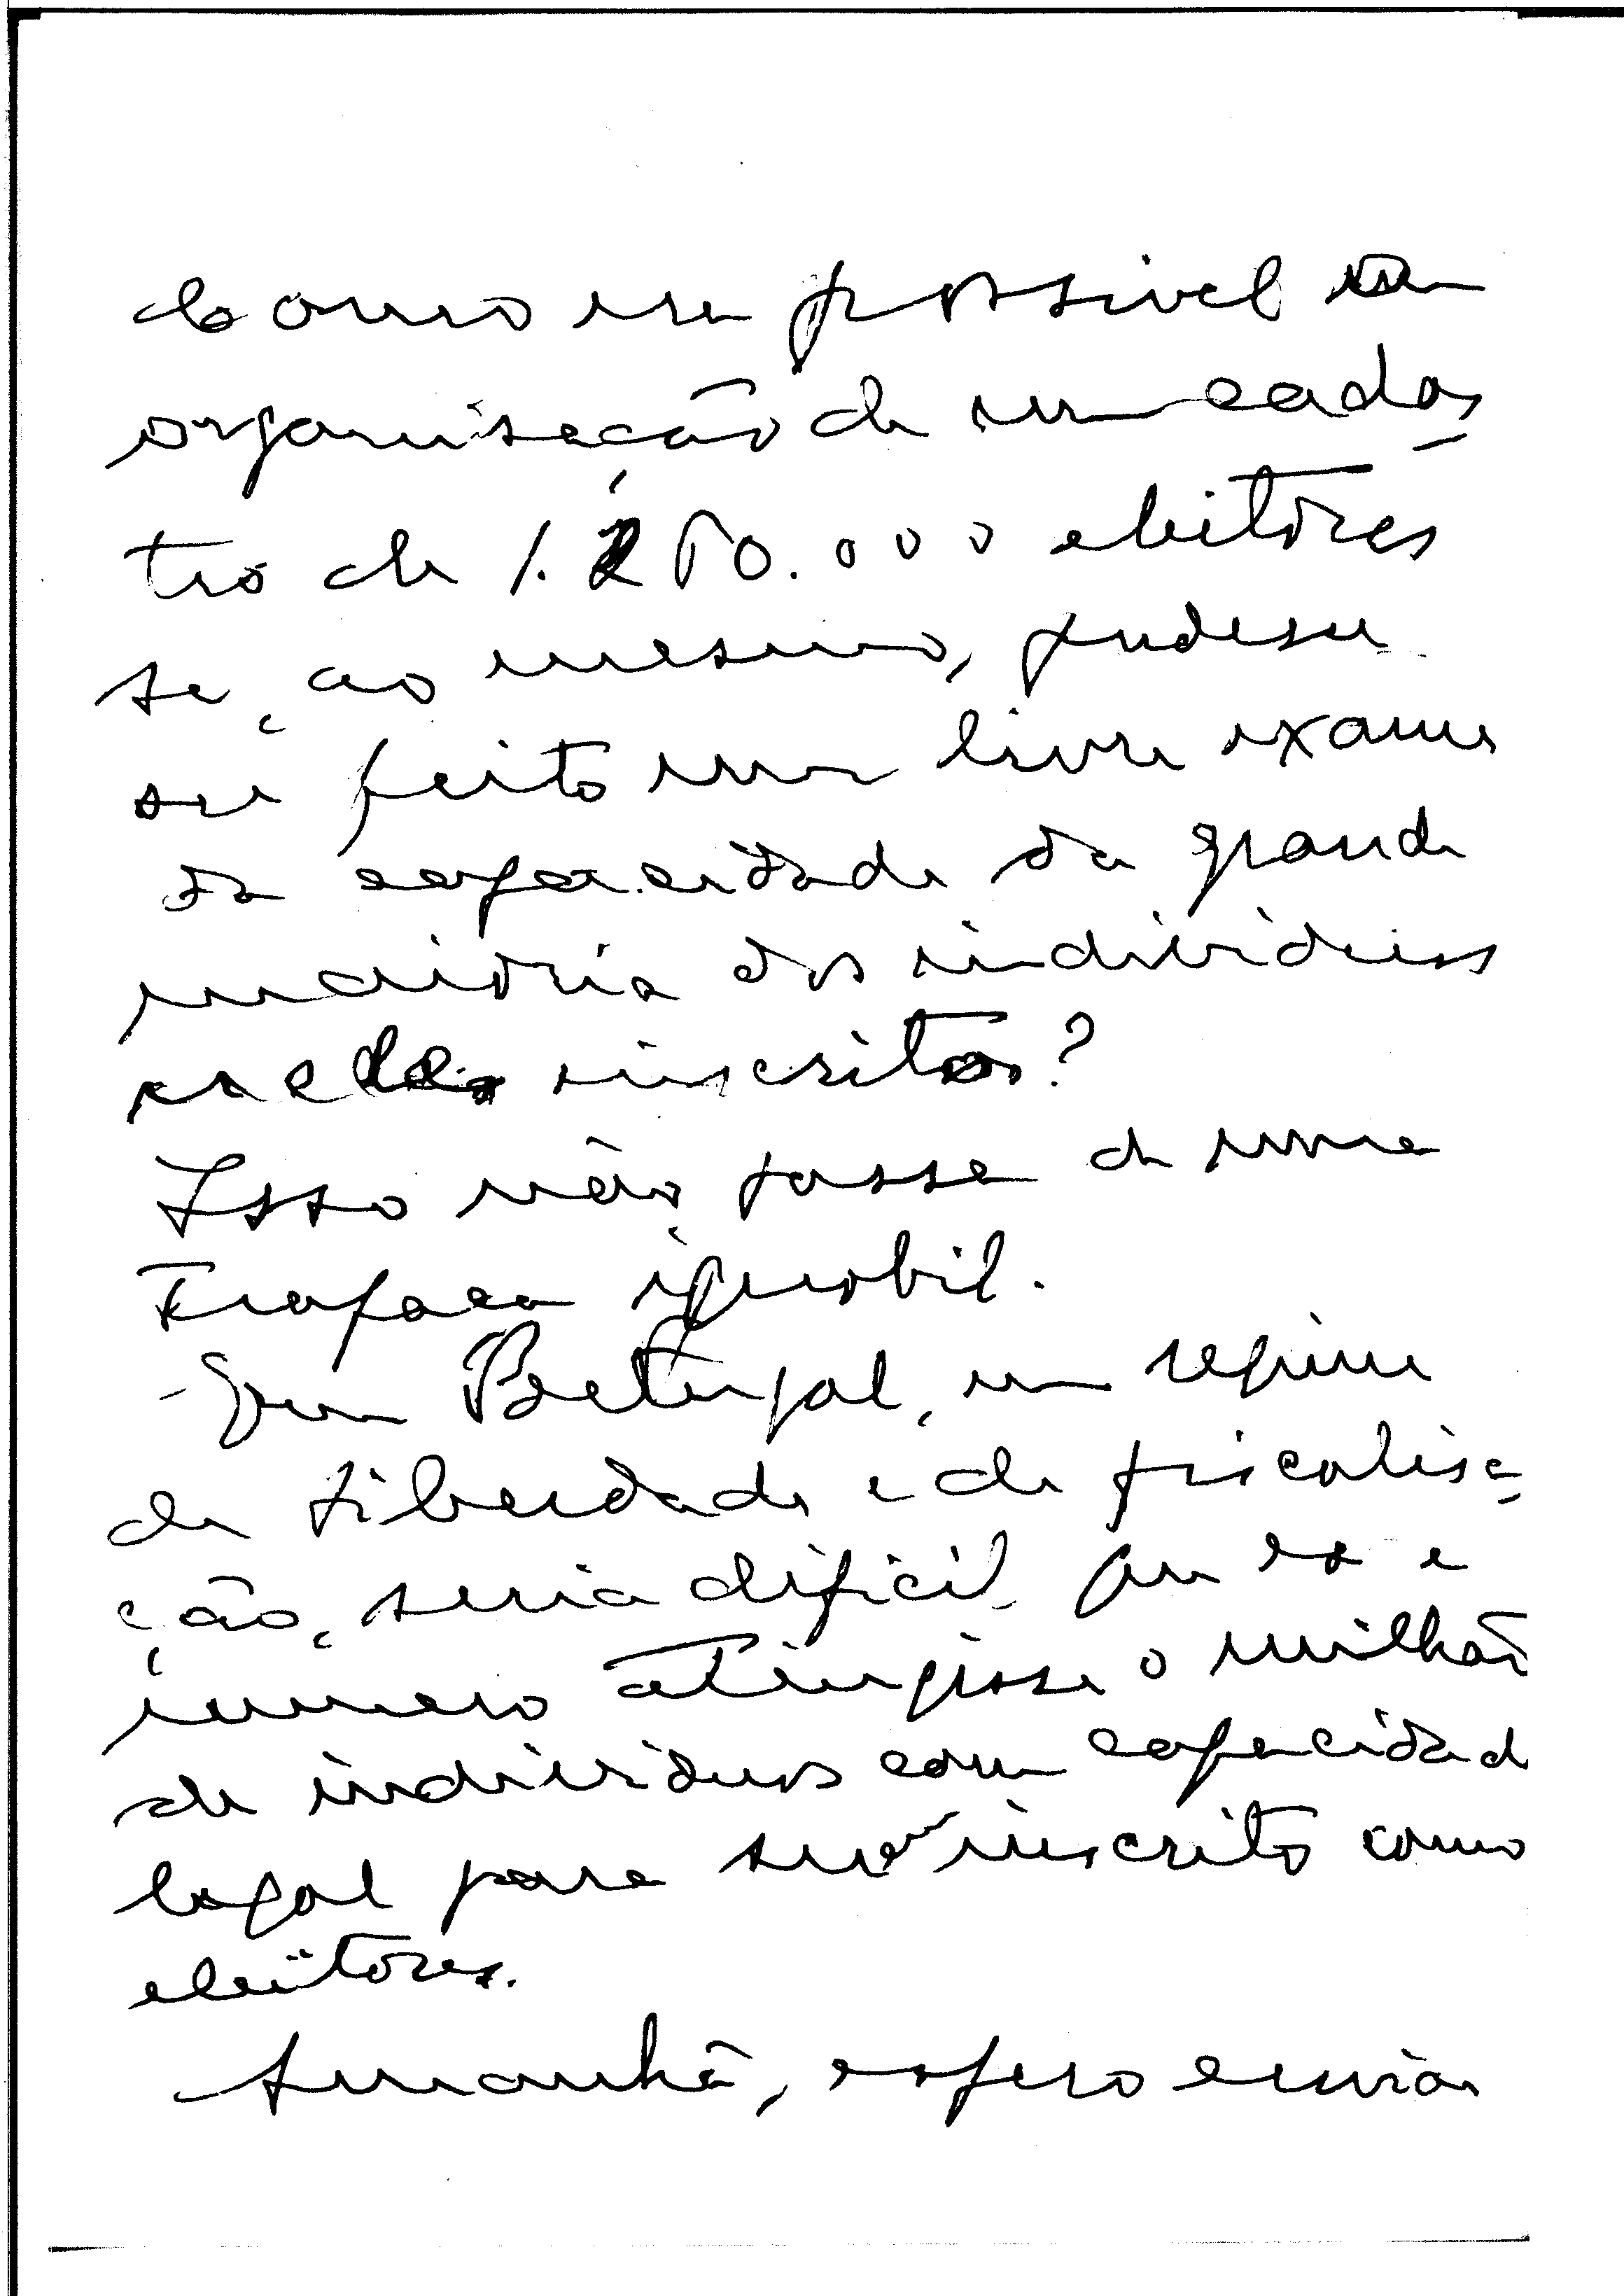 Como era possivel a
organisação de um cadas
tro de 1.250.000 eleitores
se, ao mesmo, pudesse
ser feito um livre exame
da capacidade da grande
maioria dos individuos
nele inscritos?
Isso não passa de uma
trapaça ignobil.
Em Portugal, em regime
de liberdade e de fiscalisa
ção, seria dificil que es e
numero atingisse o milhão
de individuos com capacidad
legal para ser inscrito como
eleitores.
Amanhã, espero enviar